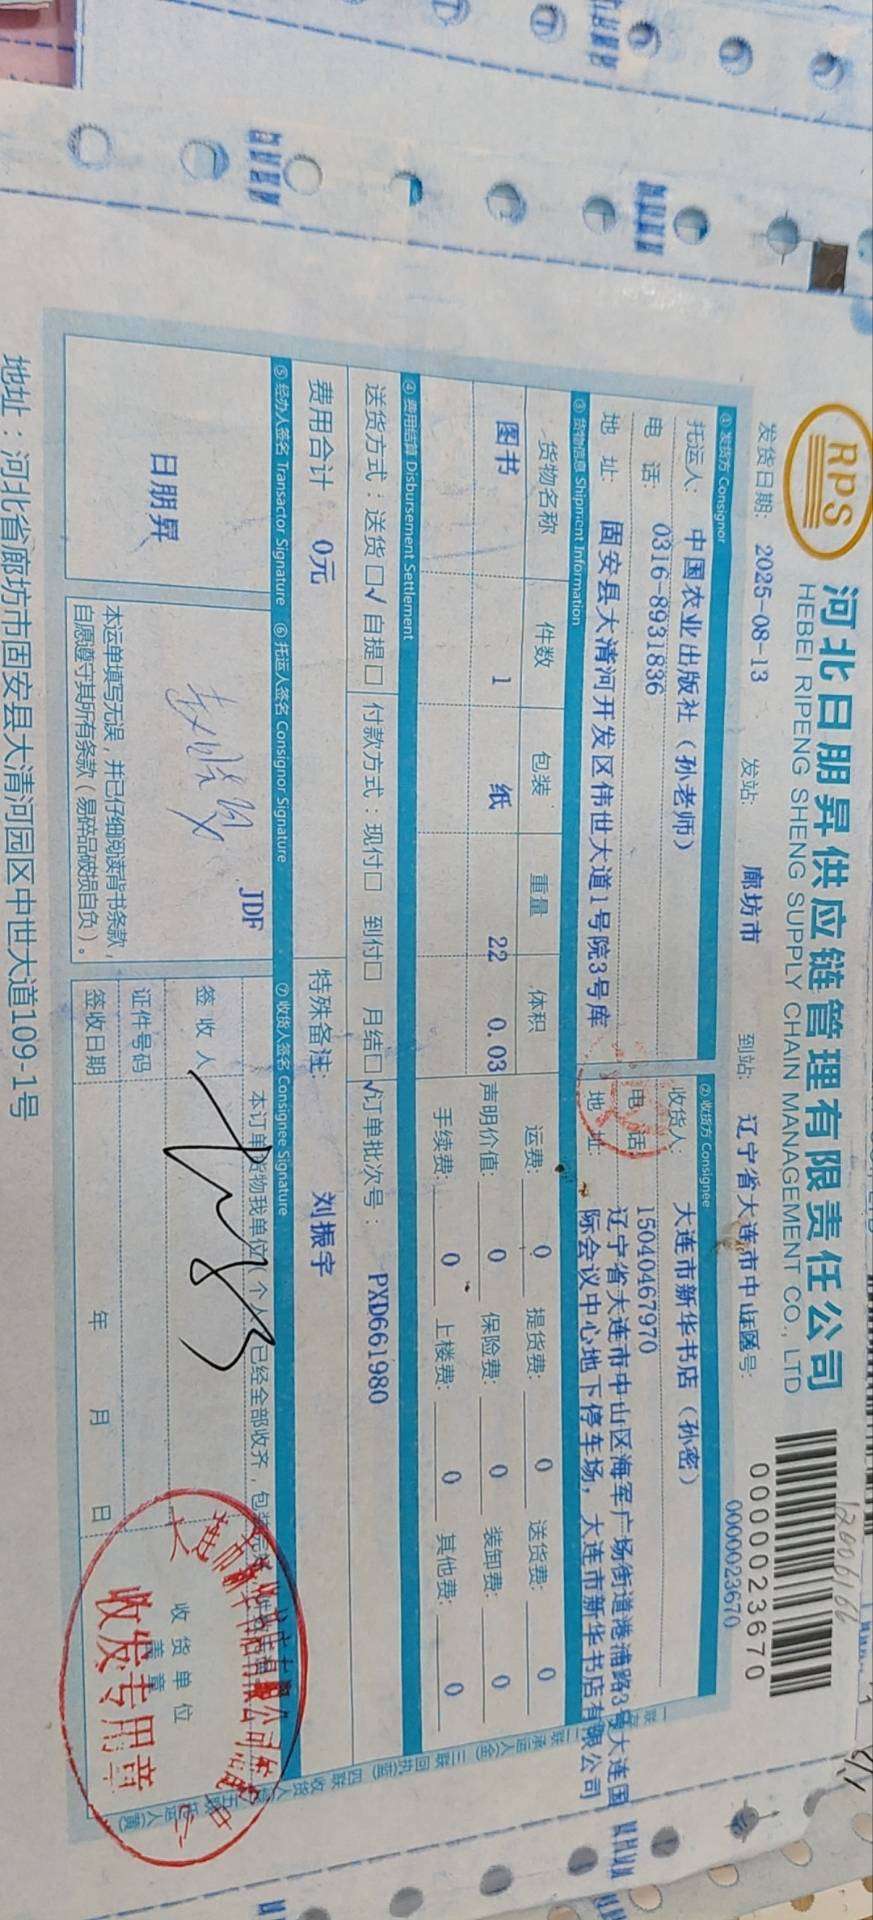 RPS
河北日朋昇供应链管理有限责任公司
HEBEI RIPENG SHENG SUPPLY CHAIN MANAGEMENT CO., LTD
0000023670
发货日期: 2025-08-13 发站: 廊坊市 到站: 辽宁省大连市中山区 号: 0000023670
① 发货方 Consignor
托运人: 中国农业出版社 (孙老师)
电 话: 0316-8931836
地 址: 固安县大清河开发区伟世大道1号院3号库
② 收货方 Consignee
收货人: 大连市新华书店 (孙密)
电 话: 15040467970
地 址: 辽宁省大连市中山区海军广场街道港浦路3号大连国
际会议中心地下停车场, 大连市新华书店有限公司
③ 货物信息 Shipment Information
货物名称 件数 包装 重量 体积
图书 1 纸 22 0.03
运费: 0 提货费: 0 送货费: 0
声明价值: 0 保险费: 0 装卸费: 0
手续费: 0 上楼费: 0 其他费: 0
④ 费用结算 Disbursement Settlement
送货方式: 送货□√ 自提□ 付款方式: 现付□ 到付□ 月结□√ 订单批次号: PXD661980
费用合计 0元 特殊备注: 刘振宇
⑤ 经办人签名 Transactor Signature ⑥ 托运人签名 Consignor Signature ⑦ 收货人签名 Consignee Signature
日朋昇
JDF
本运单填写无误, 并已仔细阅读背书条款,
自愿遵守其所有条款 (易碎品破损自负)。
本订单货物我单位(个人)已经全部收齐, 包装完
签 收 人
证件号码
签收日期 年 月 日
收货单位
盖章
收发专用章
地址: 河北省廊坊市固安县大清河园区中世大道109-1号